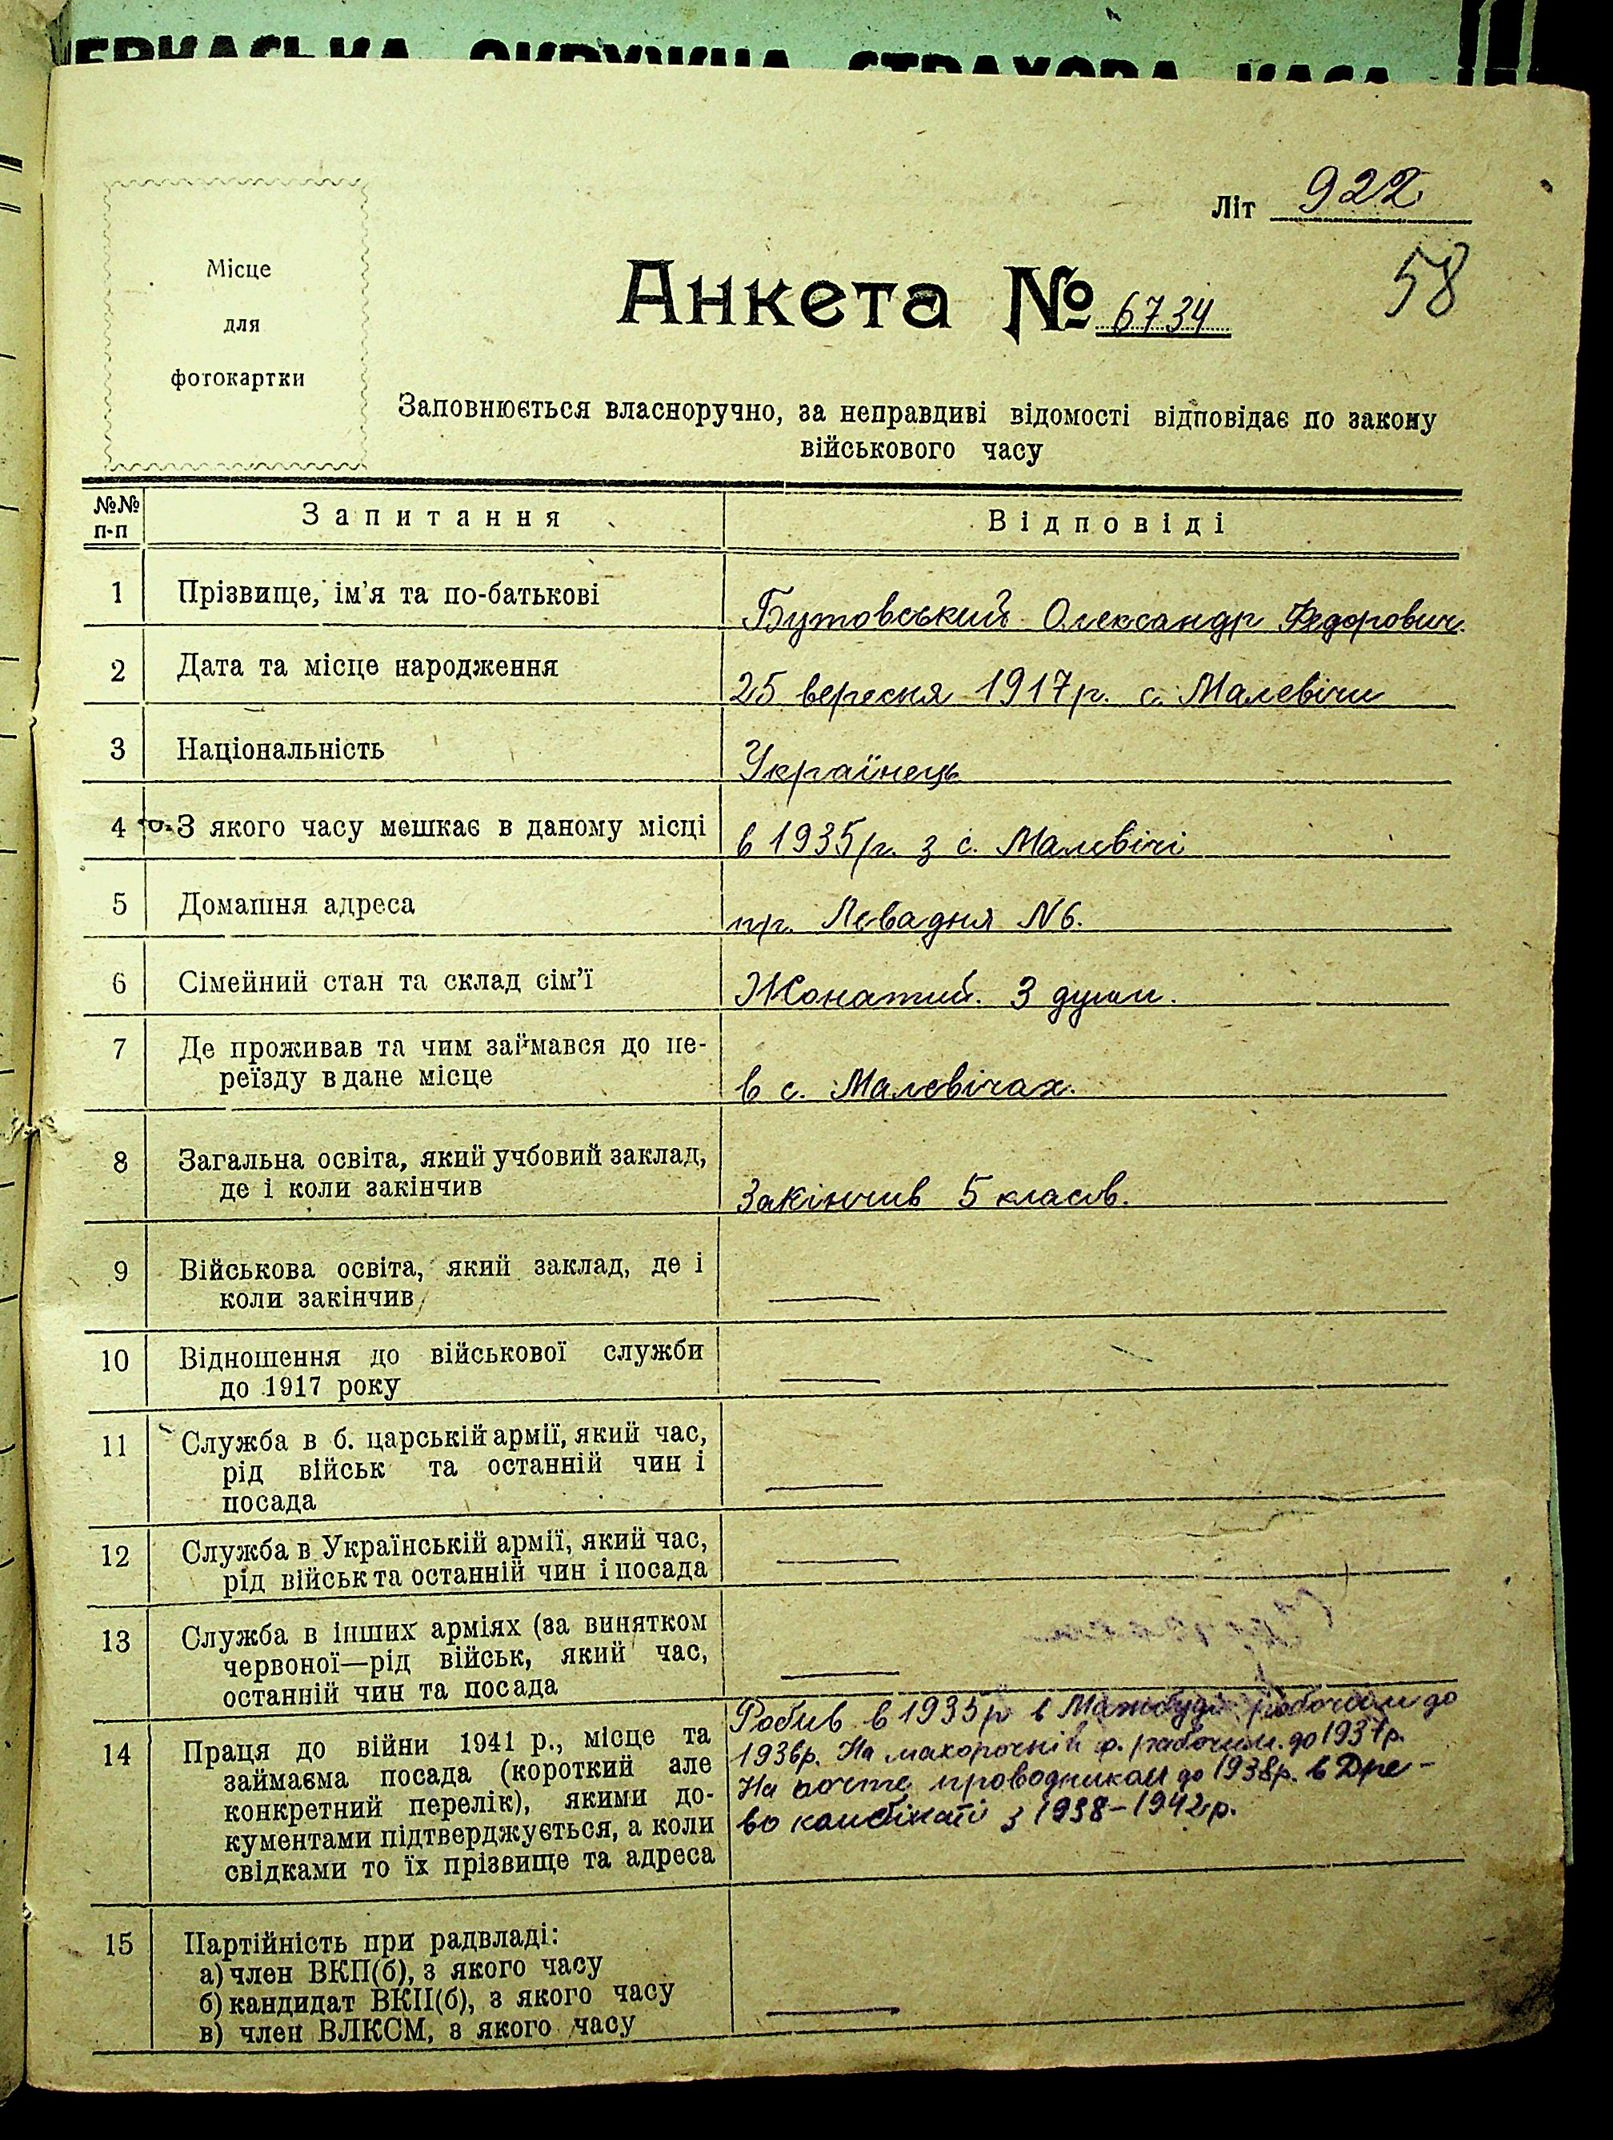 ЕРКАСЬКА ОКРУЖНА СТРАХОВА КАСА
Літ 922
58
Місце
для
фотокартки
Анкета № 6734
Заповнюється власноручно, за неправдиві відомості відповідає по закону
військового часу
№№ п-п
Запитання
Відповіді
1 Прізвище, ім'я та по-батькові
Бутовський Олександр Федорович
2 Дата та місце народження
25 вересня 1917 р. с. Малевічи
3 Національність
Українець
4 З якого часу мешкає в даному місці
в 1935 р. з с. Малевічі
5 Домашня адреса
пр. Левадня N 6.
6 Сімейний стан та склад сім'ї
Жонатий. 3 души.
7 Де проживав та чим займався до пе-
реїзду в дане місце
в с. Малевічах.
8 Загальна освіта, який учбовий заклад,
де і коли закінчив
Закінчив 5 класів.
9 Військова освіта, який заклад, де і
коли закінчив
10 Відношення до військової служби
до 1917 року
11 Служба в б. царській армії, який час,
рід військ та останній чин і
посада
12 Служба в Українській армії, який час,
рід військ та останній чин і посада
13 Служба в інших арміях (за винятком
червоної—рід військ, який час,
останній чин та посада
14 Праця до війни 1941 р., місце та
займаєма посада (короткий але
конкретний перелік), якими до-
кументами підтверджується, а коли
свідками то їх прізвище та адреса
Робив в 1935 р в Мажбуді рабочім до
1936р. На махорочній ф. рабочим. до 1937р.
На почте проводником до 1938р. в Дре-
во комбінаті з 1938-1942 р.
15 Партійність при радвладі:
а) член ВКП(б), з якого часу
б) кандидат ВКП(б), з якого часу
в) член ВЛКСМ, з якого часу